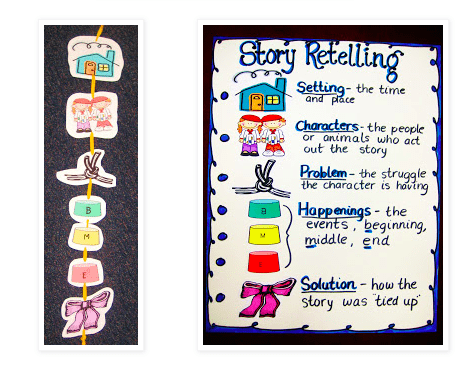 B
M
E
Story Retelling
Setting - the time
and place
Characters - the people
or animals who act
out the story
Problem - the struggle
the character is having
Happenings - the
events, beginning,
middle, end
B
M
Solution - how the
story was "tied up"